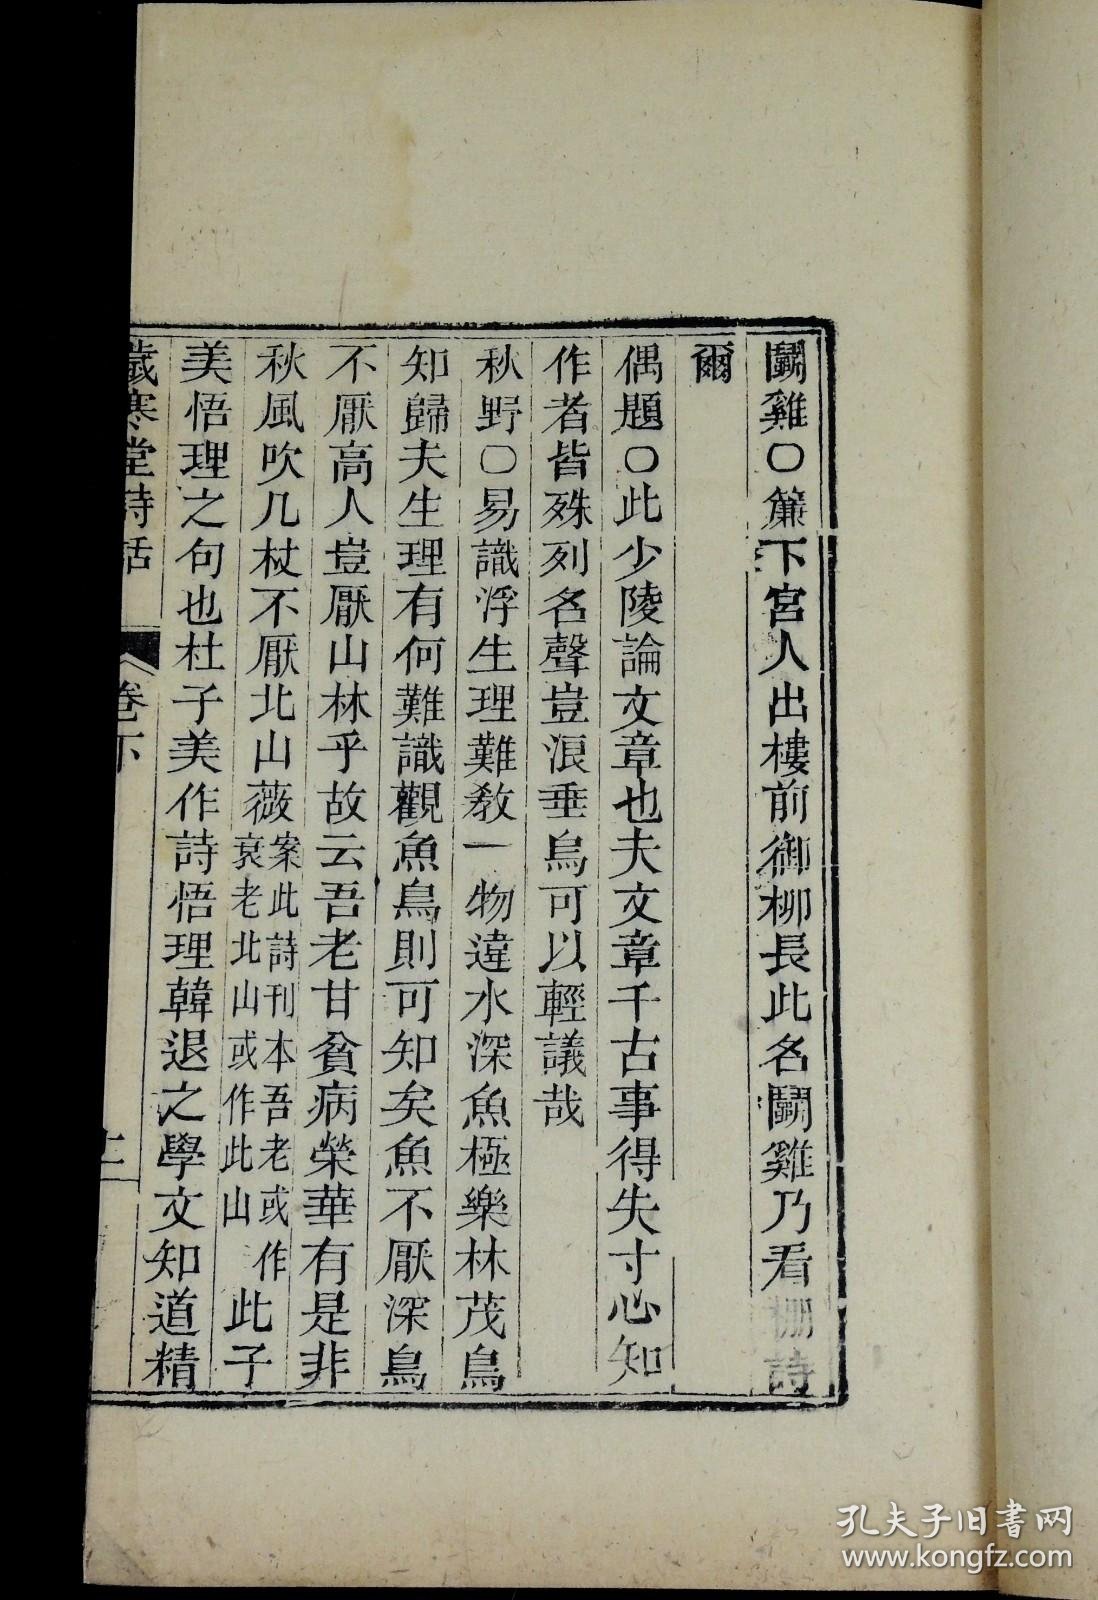 鬭雞○簾下宮人出樓前御柳長此名鬭雞乃看棚詩
爾
偶題○此少陵論文章也夫文章千古事得失寸心知
作者皆殊列名聲豈浪垂烏可以輕議哉
秋野○易識浮生理難教一物違水深魚極樂林茂鳥
知歸夫生理有何難識觀魚鳥則可知矣魚不厭深鳥
不厭高人豈厭山林乎故云吾老甘貧病榮華有是非
秋風吹几杖不厭北山薇案此詩刊本吾老或作
衰老北山或作此山此子
美悟理之句也杜子美作詩悟理韓退之學文知道精
歲寒堂詩話 卷下
孔夫子旧書网
www.kongfz.com